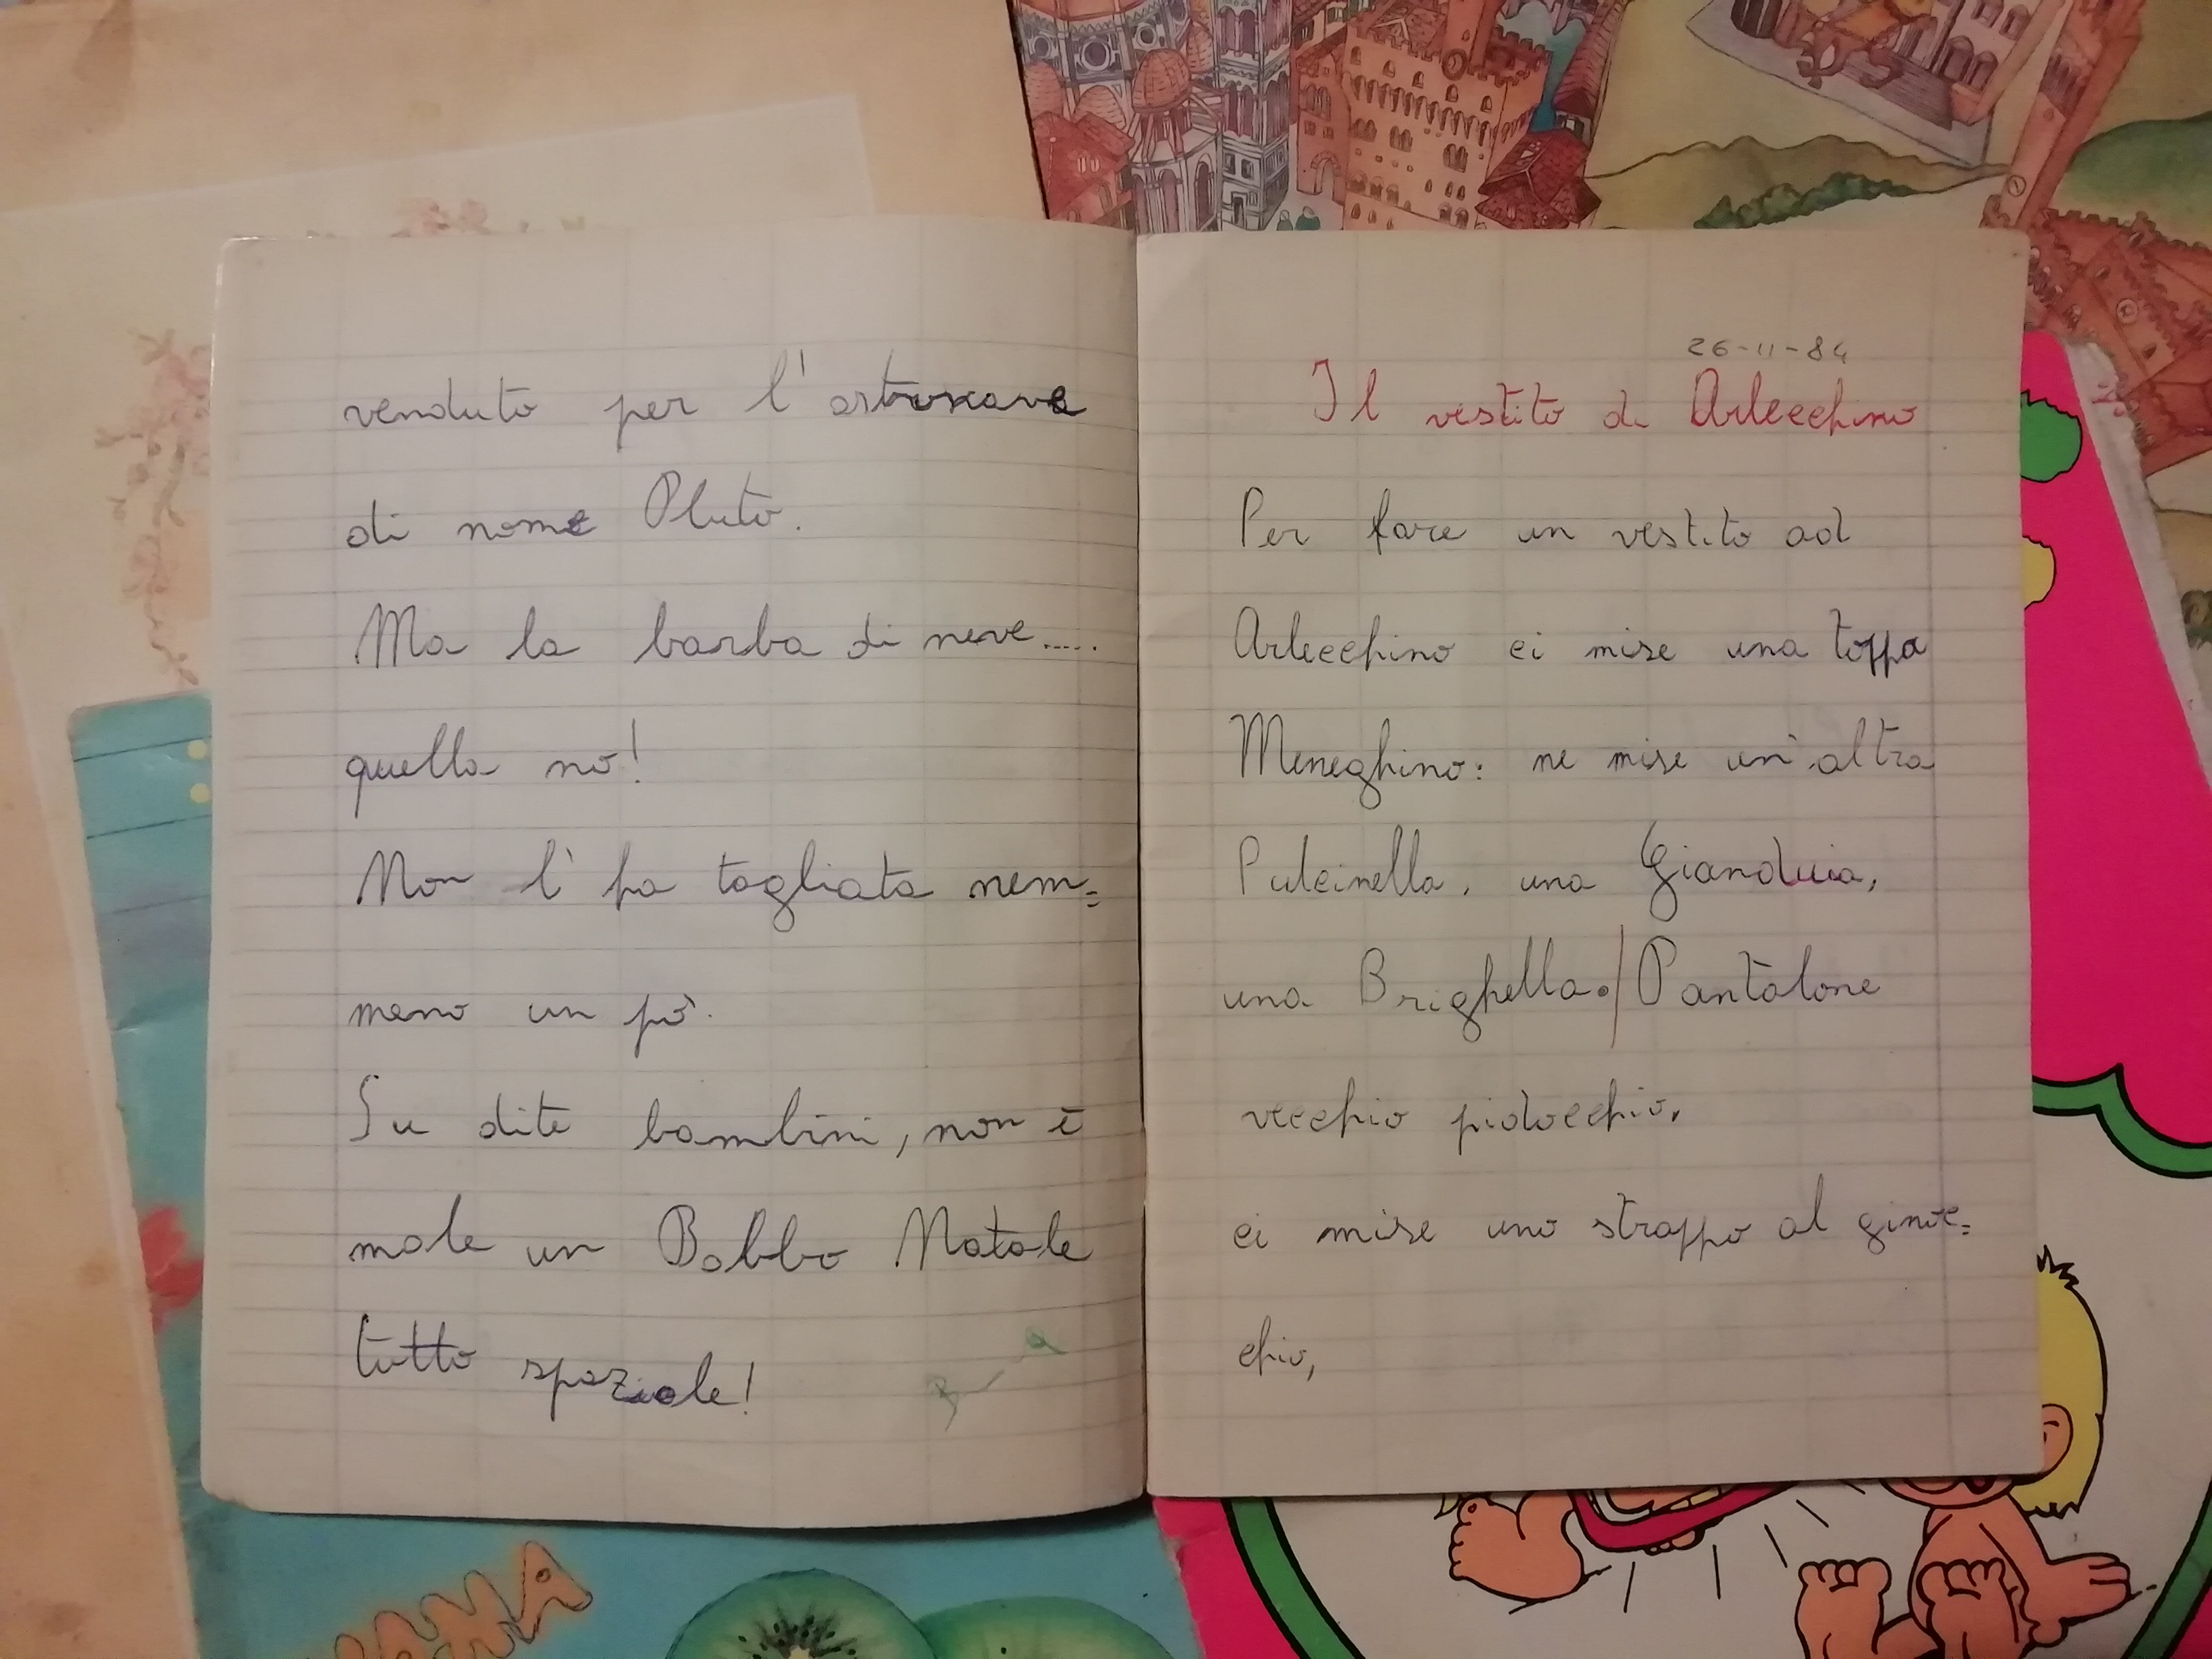 venduto per l'astronave
di nome Pluto.
Ma la barba di neve.....
quella no!
Non l'ha tagliata nem=
meno un pò.
Su dite bambini, non è
male un Babbo Natale
tutto spaziale!
26-11-84
Il vestito di Arlecchino
Per fare un vestito ad
Arlecchino ci mise una toppa
Meneghino: ne mise un'altra
Pulcinella, una Gianduia,
una Brighella./Pantalone
vecchio pidocchio,
ci mise uno strappo al ginoc=
chio,